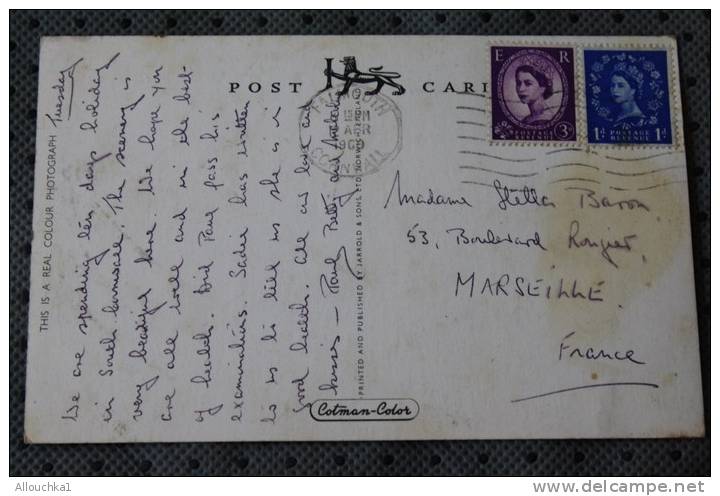 THIS IS A REAL COLOUR PHOTOGRAPH
Tuesday
We are spending ten days holiday
in South Cornwall. The scenery is
very beautiful here. We hope you
are all well and in the best
of health. Did Paul pass his
examinations. Sadie has written
to us to tell us she is in
good health. All our love and
kisses - Betty and
POST CARD
FALMOUTH
APR
CORNWALL
E R
3D
POSTAGE
REVENUE
1D
PRINTED AND PUBLISHED BY JARROLD & SONS, LTD. NORWICH, ENGLAND
Cotman-Color
Madame Stella Baron
53, Boulevard Rougier
MARSEILLE.
France
Allouchka1
delcampe.net